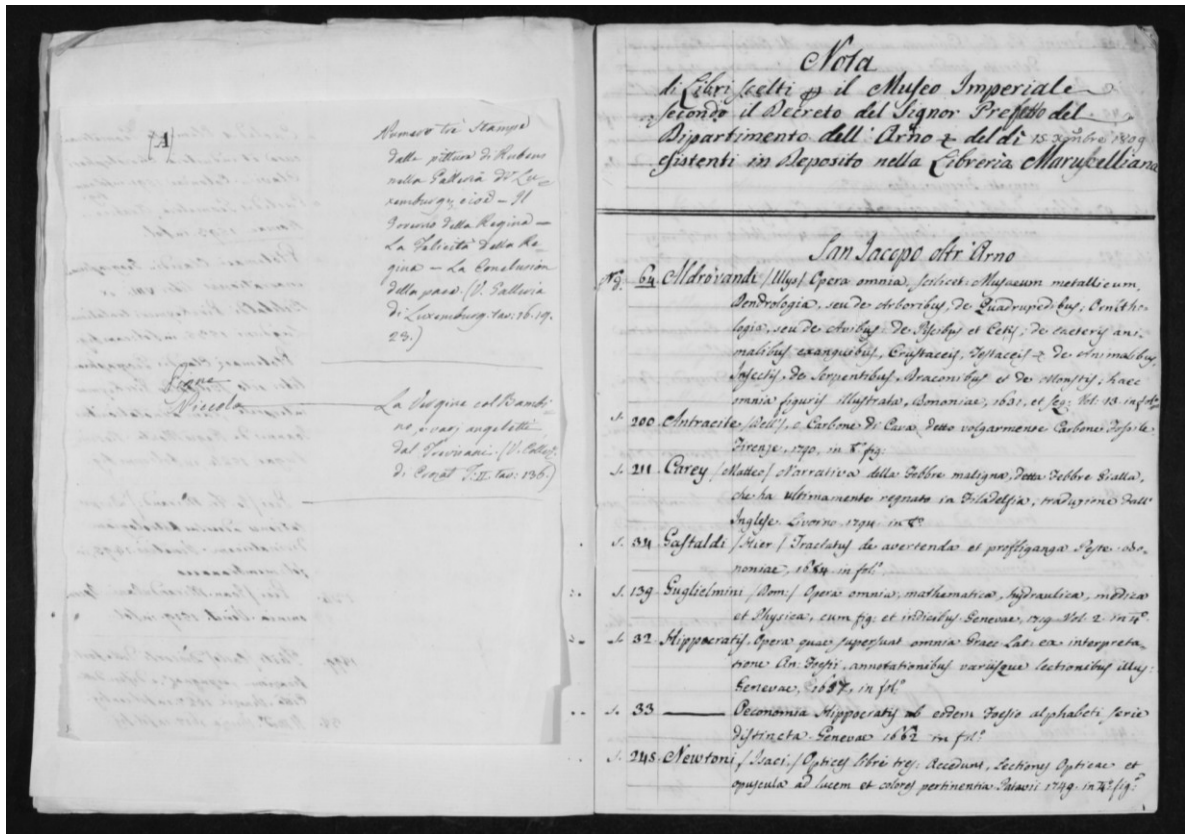 [A]
Numero tre Stampe
dalle pitture di Rubens
nella Galleria di Lu-
xemburg; cioè – Il
Governo della Regina –
La Felicità della Re-
gina – La Conclusion
della pace. (V. Galleria
di Luxemburg. tav: 16. 19.
23.)
Penna
Piccola
La Vergine col Bambi-
no, e varj angeletti
dal Trevisani. (V. Collez:
di Crozat T. II. tav: 136.)
Nota
di Libri scelti p il Museo Imperiale
secondo il Decreto del Signor Prefetto del
Dipartimento dell' Arno & del dì 15 Xmbre 1809
esistenti in Deposito nella Libreria Marucelliana
San Jacopo oltr' Arno
No. 64 Aldrovandi /Ulys/ Opera omnia, scilicet: Musaeum metallicum,
Dendrologia, seu de Arboribus, de Quadrupedibus; Ornitho-
logia, seu de Avibus: de Piscibus et Cetis; de caeteris ani-
malibus exanguibus, Crustaceis, Testaceis & de Animalibus
Insectis, de Serpentibus, Draconibus et de Monstris; haec
omnia figuris illustrata, Bononiae, 1681, et seq: Vol: 13. in folo
s. 200 Antracite /Dell'/, o Carbone di Cava, detto volgarmente Carbone Fossile
Firenze, 1790, in 8o fig:
s. 211 Carey /Matteo/ Narrativa della Febbre maligna, detta Febbre Gialla,
che ha ultimamente regnato in Filadelfia; traduzione dall'
Inglese. Livorno. 1794. in 8o
s. 34 Gastaldi /Hier/ Tractatus de avertenda et profliganga Peste. Bo-
noniae, 1684. in folo
s. 139 Guglielmini /Dom:/ Opera omnia, mathematica, hydraulica, medica
et Physica; cum fig: et indicibus. Genevae, 1719. Vol. 2. in 4o
s. 32 Hippocratis. Opera quae supersunt omnia Graec-Lat: ex interpreta-
tione An: Foesii, annotationibus variisque lectionibus illus:
Genevae, 1657, in folo
s. 33 ——— Oeconomia Hippocratis ab eodem Foesio alphabeti serie
distincta. Genevae 1662 in folo
s. 248 Newtoni /Isaci/ Optices libri tres: Accedunt, Lectiones Opticae et
opuscula ad lucem et colores pertinentia. Patavii 1749. in 4o fig: